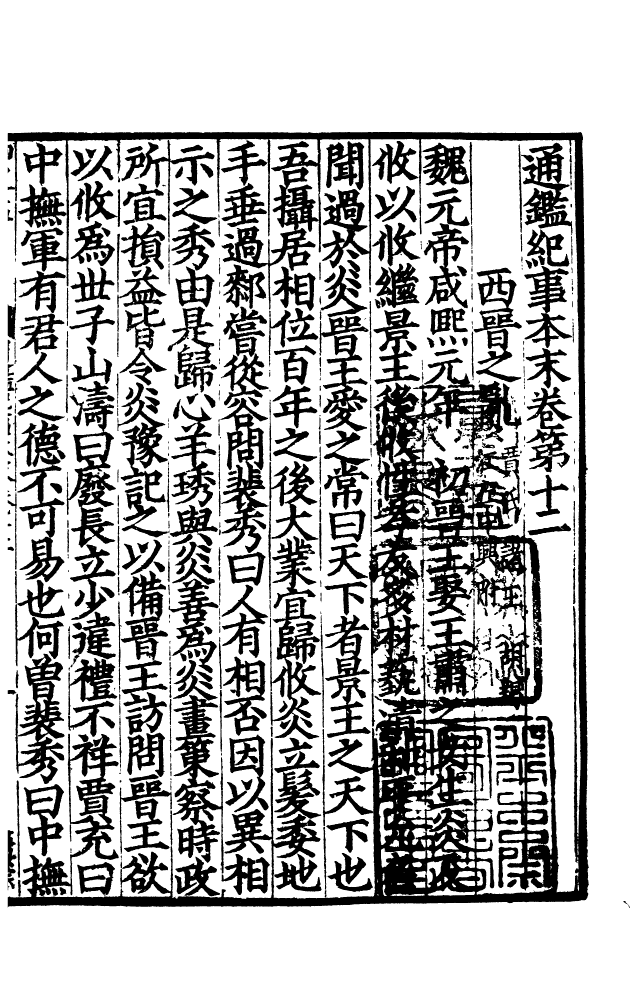 通鑑紀事本末卷第十二
西晉之亂
魏元帝咸熙元年初晉王娶王肅之女生炎及
攸以攸繼景王後攸性孝友多材藝清和平允
聞過於炎晉王愛之常曰天下者景王之天下也
吾攝居相位百年之後大業宜歸攸炎立髮委地
手垂過䣛嘗從容問裴秀曰人有相否因以異相
示之秀由是歸心羊琇與炎善爲炎畫策察時政
所宜損益皆令炎豫記之以備晉王訪問晉王欲
以攸爲世子山濤曰廢長立少違禮不祥賈充曰
中撫軍有君人之德不可易也何曽裴秀曰中撫